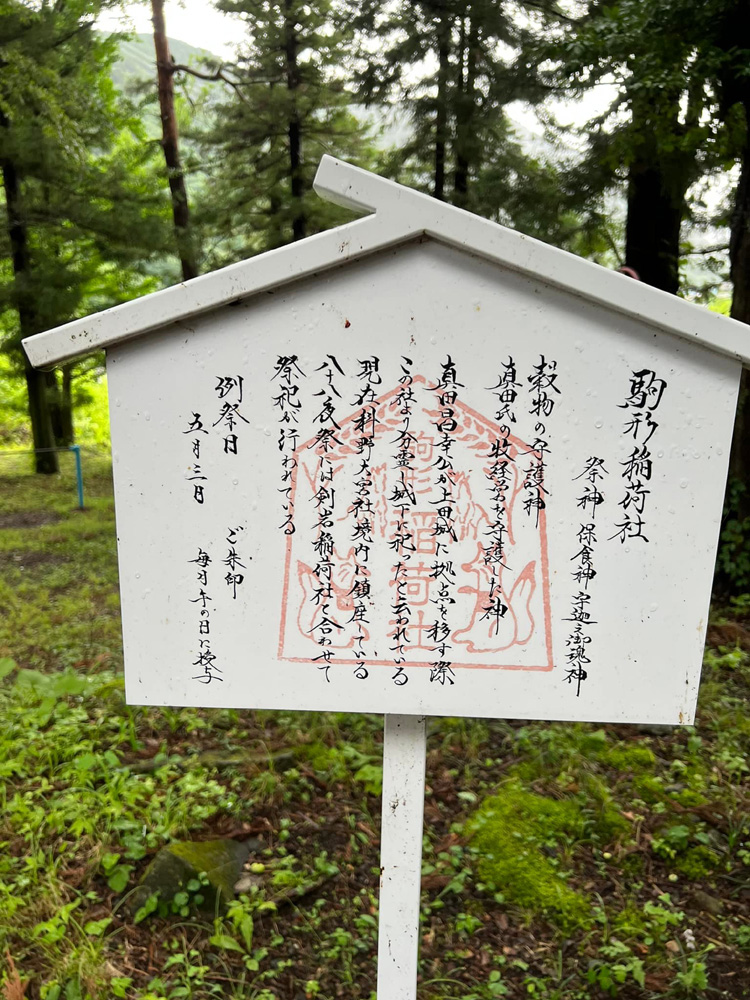 駒形稲荷社
祭神 保食神 宇迦之御魂神
穀物の守護神
真田氏の牧経営を守護した神
真田昌幸公が上田城に拠点を移す際
この社より分霊し城下に祀ったと云われている
現在科野大宮社境内に鎮座している
八十八夜祭には剣岩稲荷社と合わせて
祭祀が行われている
例祭日
五月三日
ご朱印
毎月午の日に授与
駒形
稲荷社